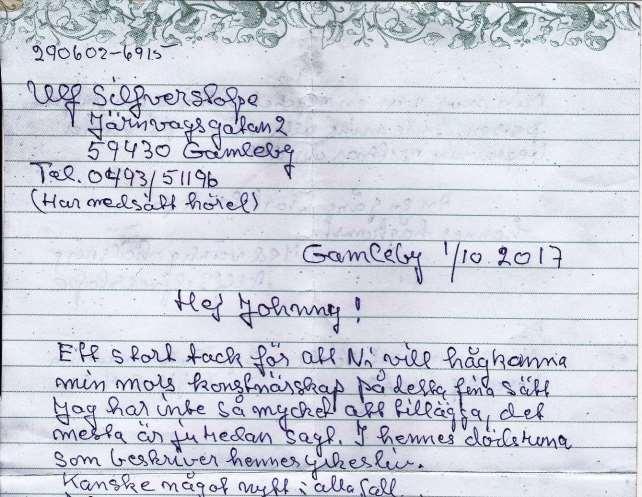 290602-6915
Ulf Silfverstolpe
Järnvagsgatan 2
59430 Gamleby
Tel. 0493/51196
(Har nedsätt hörel)
Gamleby 1/10.2017
Hej Johnny!
Ett stort tack för att Ni vill hågkomma
min mors konstnärskap på detta fina sätt
Jag har inte så mycket att tillägga, det
mesta är ju redan sagt. I hennes dödsruna
som beskriver hennes yrkesliv.
Kanske något nytt i alla fall